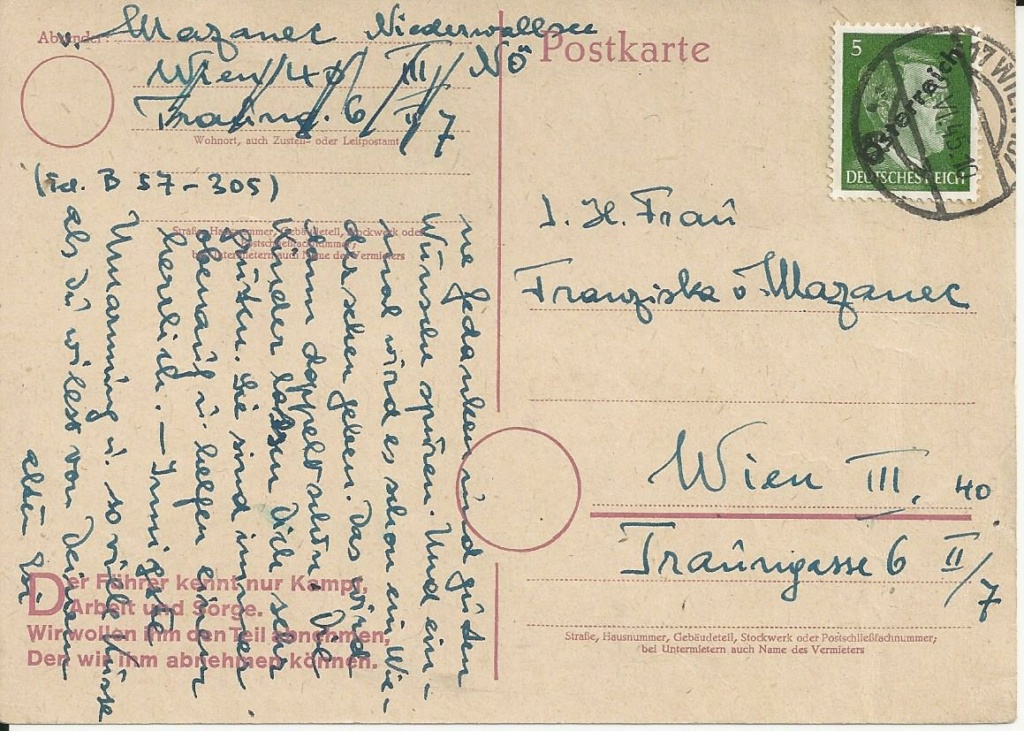 Absender:
v. Mazanec Niederwallsee
Wien/40 III/ NÖ
Traung. 6/II/7
Wohnort, auch Zustell- oder Leitpostamt
(Tel. B 57-305)
Straße, Hausnummer, Gebäudeteil, Stockwerk oder
Postschließfachnummer;
bei Untermietern auch Name des Vermieters
ne Gedanken und guten
Wünsche spüren. Und ein-
mal wird es schon ein Wie-
dersehen geben. Das wird
dann doppelt schön. Die
Kinder lassen Dich sehr
grüßen. Sie sind immer
obenauf u. helfen einem
herrlich. — Innigste
Umarmung u. so viele Küsse
als du willst von Deinem
alten
Der Führer kennt nur Kampf,
Arbeit und Sorge.
Wir wollen ihm den Teil abnehmen,
Den wir ihm abnehmen können.
Postkarte
5
Österreich
DEUTSCHES REICH
17 WIEN 107
I. H. Frau
Franziska v. Mazanec
Wien III. 40
Traungasse 6 II/7
Straße, Hausnummer, Gebäudeteil, Stockwerk oder Postschließfachnummer;
bei Untermietern auch Name des Vermieters